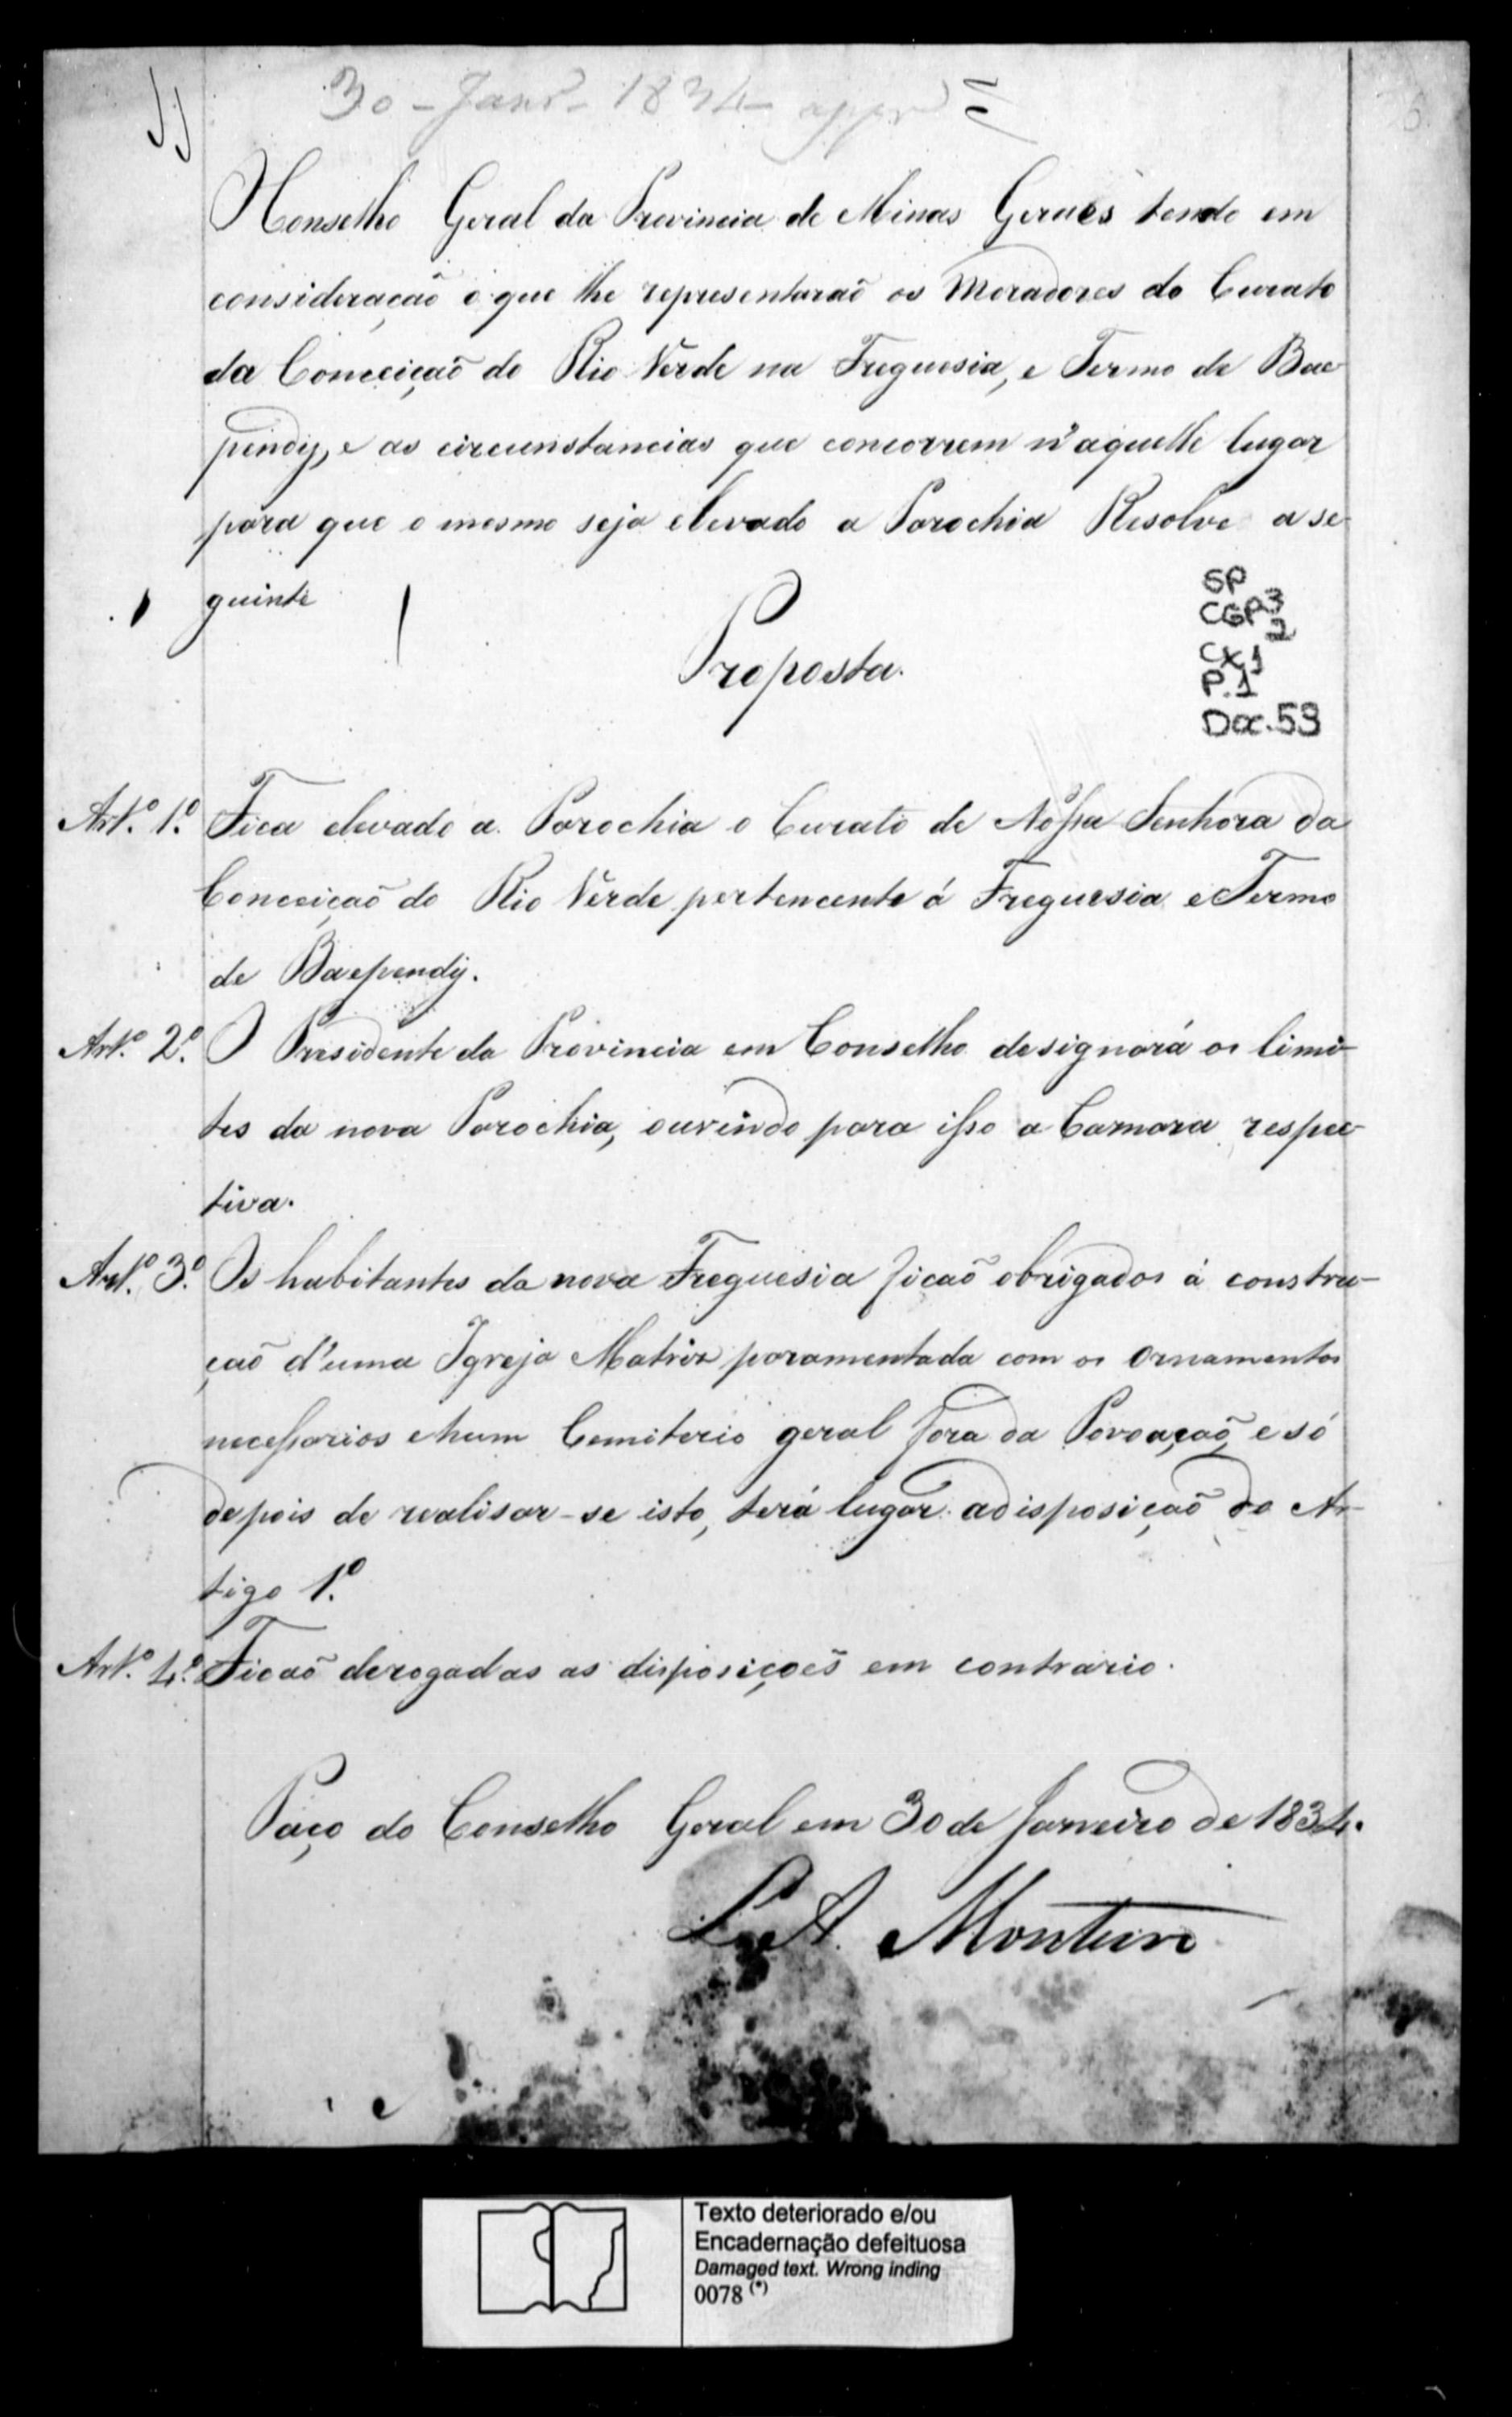 30 - Janr.- 1834
Conselho Geral da Provincia de Minas Geraes tendo em
consideração o que lhe representaraõ os Moradores do Curato
da Conceiçaõ do Rio Verde na Freguesia, e Termo de Bae-
pendÿ, e as circunstancias que concorrem n'aquelle lugar
para que o mesmo seja elevado a Parochia Resolve a se-
guinte
SP
CGP3
2
Cx1
P.1
Doc.53
Proposta.
Art.º 1.º Fica elevado a Parochia o Curato de Nossa Senhora da
Conceiçaõ do Rio Verde pertencente á Freguesia e Termo
de Baependÿ.
Art.º 2.º O Presidente da Provincia em Conselho designará os limi-
tes da nova Parochia, ouvindo para isso a Camara respec-
tiva.
Art.º 3.º Os habitantes da nova Freguesia ficaõ obrigados á constru-
çaõ d'uma Igreja Matriz paramentada com os Ornamentos
necessarios e hum Cemiterio geral fora da Povoaçaõ, e só
depois de realisar-se isto, terá lugar a disposiçaõ do Ar-
tigo 1.º
Art.º 4.º Ficaõ derogadas as disposiçoẽs em contrario.
Paço do Conselho Geral em 30 de Janeiro de 1834.
L. A. Monteiro
Texto deteriorado e/ou
Encadernação defeituosa
Damaged text. Wrong inding
0078 (*)